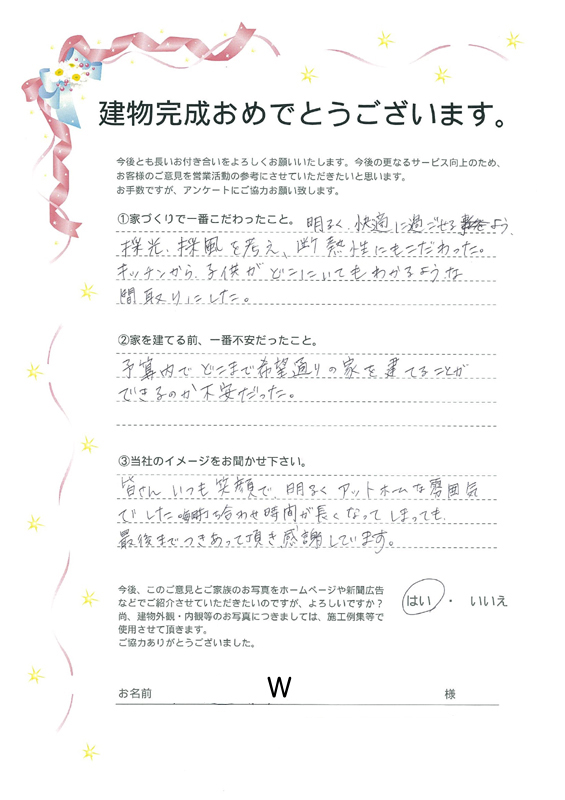 建物完成おめでとうございます。
今後とも長いお付き合いをよろしくお願いいたします。今後の更なるサービス向上のため、
お客様のご意見を営業活動の参考にさせていただきたいと思います。
お手数ですが、アンケートにご協力お願い致します。
①家づくりで一番こだわったこと。 明るく、快適に過ごせるよう、
採光、採風を考え、断熱性にもこだわった。
キッチンから、子供がどこにいてもわかるような
間取りにした。
②家を建てる前、一番不安だったこと。
予算内でどこまで希望通りの家を建てることが
できるのか不安だった。
③当社のイメージをお聞かせ下さい。
皆さん、いつも笑顔で、明るくアットホームな雰囲気
でした。打ち合わせ時間が長くなってしまっても、
最後までつきあって頂き感謝しています。
今後、このご意見とご家族のお写真をホームページや新聞広告
などでご紹介させていただきたいのですが、よろしいですか？ はい ・ いいえ
尚、建物外観・内観等のお写真につきましては、施工例集等で
使用させて頂きます。
ご協力ありがとうございました。
お名前 W 様